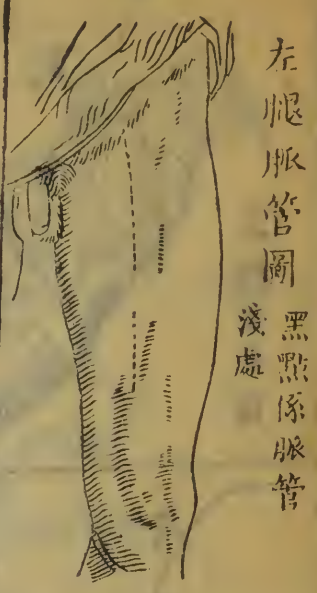 左腿脈管圖
黑點係脈管
淺處